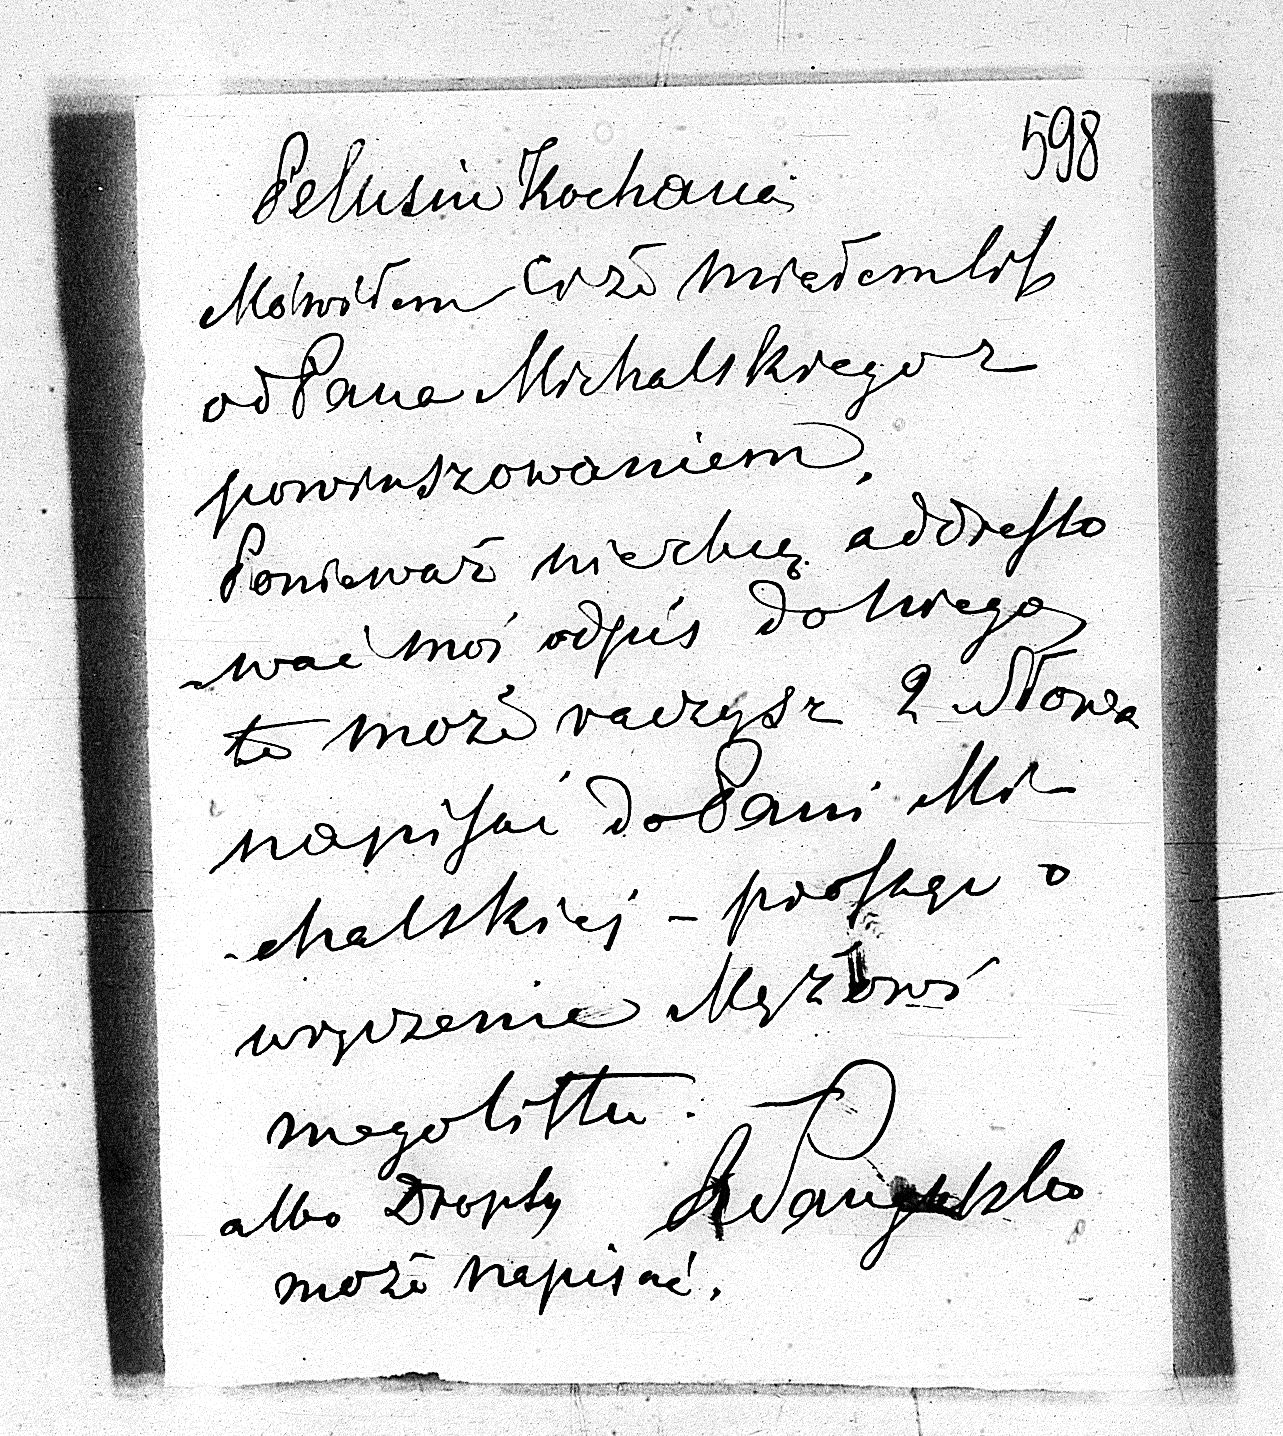 598
Pelusiu Kochana
Mówiłem Ci że miałem list
od Pana Michalskiego z
powinszowaniem.
Ponieważ niechcę addresso
-wać mój odpis do niego
to może raczysz 2 słowa
napisać do Pani Mi
-chalskiej - prosząc o
wręczenie Mężowi
mego listu.
albo Dropsy
może napisać.